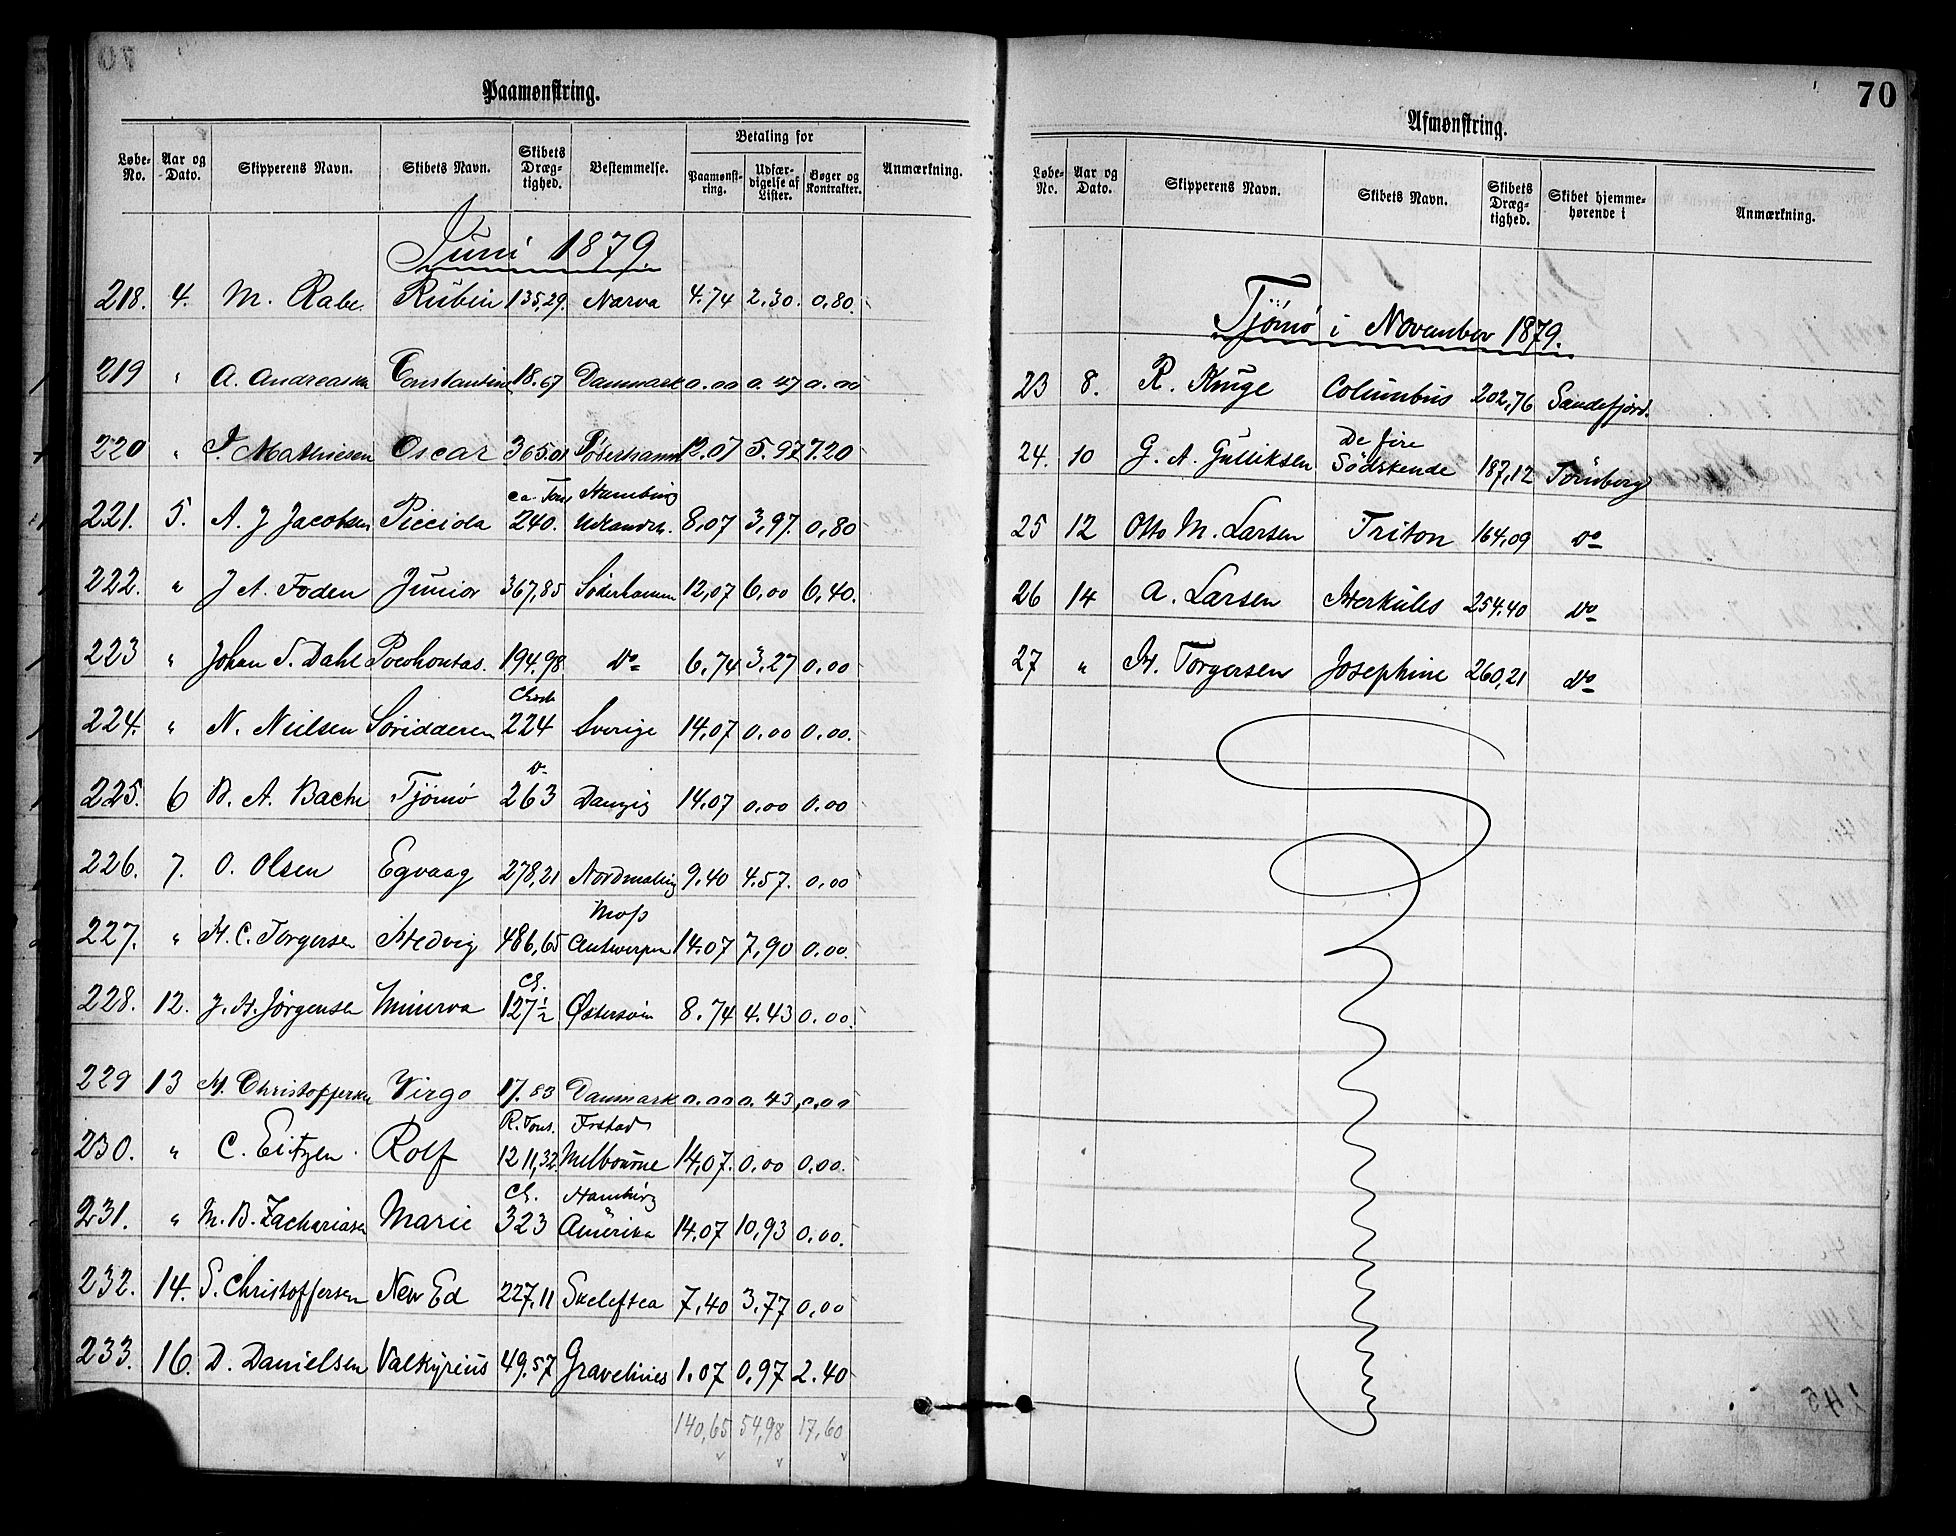 Paamønstring.
Løbe-No. Aar og Dato. Skipperens Navn. Skibets Navn. Skibets Dræg-tighed. Bestemmelse. Betaling for Anmærkning.
Paamønst-ring. Udfær-digelse af Lister. Bøger og Kontrakter.
Juni 1879.
218. 4. M. Rabe Rubin 135,29. Narva 4.74 2.30. 0,80.
219 " A. Andreassen Constantine 18.67 Danmark 0.00 0.47 0.00
220 " J. Mathiesen Oscar 365.01 Söderhamn 12.07 5.97 7.20
ca. Tons Hamburg
221. 5. A. J Jacobsen Picciola 240. Udlandet. 8,07 3,97. 0,80
222. " J A. Foden Junior 367,85 Söderhamn 12,07 6,00 6,40.
223 " Johan S. Dahl Pocohontas. 194.98 Do 6,74 3,27 0,00
224. " N. Nielsen Søridderen 224 Sverige 14,07 0.00 0,00.
225. 6 B. A. Bache Tjömö 263 Danzig 14.07 0.00 0.00
226. 7. O. Olsen Egvaag 278,21 Nordmaling 9.40 4.57. 0,00
Moss
227. " H. C. Torgersen Hedvig 486,65 Antwerpen 14.07 7,90 0.00.
Cl.
228. 12. J. H. Jörgensen Minerva 127½ Østersøen 8.74 4.43 0.00.
229 13 H. Christoffersen Virgo 17.83 Danmark 0.00 0.43 0.00
R. Tons. Frstad
230. " C. Eitzen. Rolf 1211,32. Melbourne 14,07. 0,00 0,00.
Cl. Hamburg
231. " M. B. Zachariasen Marie 323 Amerika 14.07 10,93 0,00.
232. 14. S. Christoffersen New Ed 227.11 Skeleftea 7,40 3,77 0,00
233. 16. D. Danielsen Valkyrius 49.57 Gravelines 1.07 0,97 2.40
140,65 54,98 17,60
70
Afmønstring.
Løbe-No. Aar og Dato. Skipperens Navn. Skibets Navn. Skibets Dræg-tighed. Skibet hjemme-hørende i Anmærkning.
Tjömö i November 1879.
23 8. R. Kruge Columbus 202,76 Sandefjord.
De fire
24. 10 G. A. Gulliksen Södskende 187,12 Tönsberg
25 12 Otto M. Larsen Triton 164,09 Do
26 14 A. Larsen Herkules 254.40 Do
27 " H. Torgersen Josephine 260,21 Do